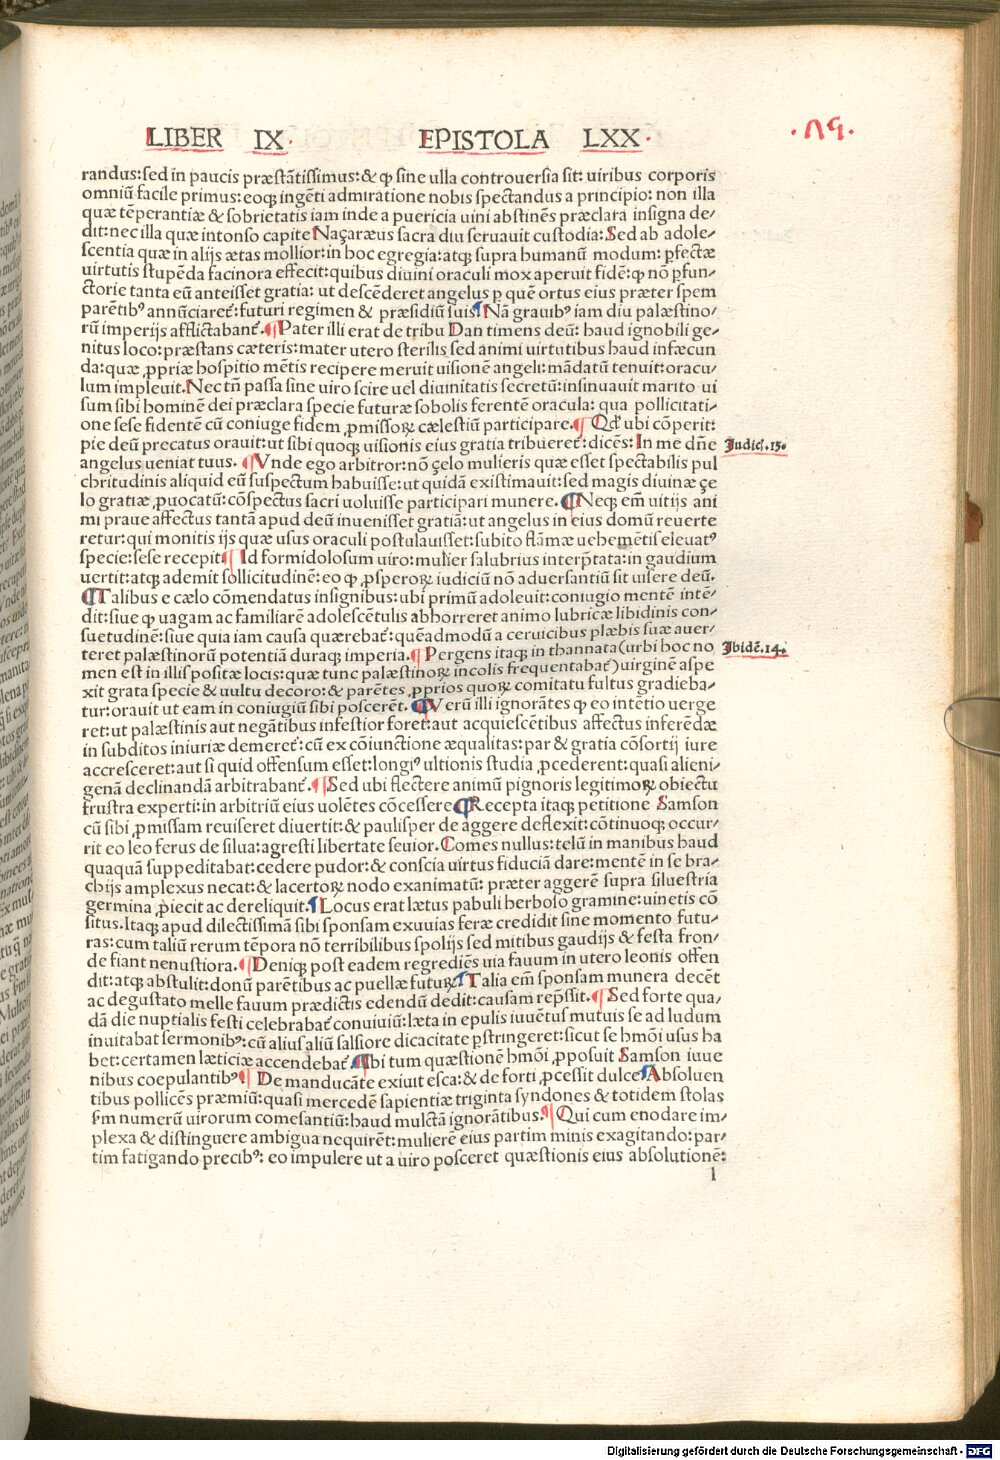 LIBER IX· EPISTOLA LXX·
·79·
randus: sed in paucis præstātissimus: & ꝙ sine ulla controuersia sit: uiribus corporis
omniū facile primus: eoqꝫ ingēti admiratione nobis spectandus a principio: non illa
quæ tēperantiæ & sobrietatis iam inde a puericia uini abstinēs præclara insigna de⸗
dit: nec illa quæ intonso capite Naçaræus sacra diu seruauit custodia: Sed ab adole⸗
scentia quæ in alijs ætas mollior: in hoc egregia: atqꝫ supra humanū modum: ꝑfectæ
uirtutis stupēda facinora effecit: quibus diuini oraculi mox aperuit fidē: ꝙ nō ꝑfun⸗
ctorie tanta eū anteisset gratia: ut descēderet angelus ꝑ quē ortus eius præter spem
parētibꝰ annūciaret̉: futuri regimen & præsidiū suis ¶ Nā grauibꝰ iam diu palæstino⸗
rū imperijs afflictabant̉. ¶ Pater illi erat de tribu Dan timens deū: haud ignobili ge⸗
nitus loco: præstans cæteris: mater utero sterilis sed animi uirtutibus haud infæcun
da: quæ ꝓpriæ hospitio mētis recipere meruit uisionē angeli: mādatū tenuit: oracu⸗
lum impleuit. Nec tn̄ passa sine uiro scire uel diuinitatis secretū: insinuauit marito ui
sum sibi hominē dei præclara specie futuræ sobolis ferentē oracula: qua pollicitati⸗
one sese fidentē cū coniuge fidem ꝓmissoꝝ cælestiū participare. ¶ Qd̄ ubi cōperit:
pie deū precatus orauit: ut sibi quoqꝫ uisionis eius gratia tribueret̉: dicēs: In me dn̄e
Judic̄. 13.
angelus ueniat tuus. ¶ Vnde ego arbitror: nō çelo mulieris quæ esset spectabilis pul
chritudinis aliquid eū suspectum habuisse: ut quidā existimauit: sed magis diuinæ çe
lo gratiæ ꝓuocatū: cōspectus sacri uoluisse participari munere. ¶ Neqꝫ em̄ uitijs ani
mi praue affectus tantā apud deū inuenisset gratiā: ut angelus in eius domū reuerte
retur: qui monitis ijs quæ usus oraculi postulauisset: subito flāmæ uehemētis eleuatꝰ
specie: sese recepit ¶ Id formidolosum uiro: mulier salubrius interp̄tata: in gaudium
uertit: atqꝫ ademit sollicitudinē: eo ꝙ ꝓsperoꝝ iudiciū nō aduersantiū sit uisere deū.
¶ Talibus e cælo cōmendatus insignibus: ubi primū adoleuit: coniugio mentē intē⸗
dit: siue ꝙ uagam ac familiarē adolescētulis abhorreret animo lubricæ libidinis con⸗
suetudinē: siue quia iam causa quærebat̉: quēadmodū a ceruicibus plæbis suæ auer⸗
teret palæstinorū potentiā duraqꝫ imperia. ¶ Pergens itaqꝫ in thannata (urbi hoc no
Jbidē. 14.
men est in illis positæ locis: quæ tunc palæstinoꝝ incolis frequentabat̉) uirginē aspe
xit grata specie & uultu decoro: & parētes ꝓprios quoꝝ comitatu fultus gradieba⸗
tur: orauit ut eam in coniugiū sibi poscerēt. ¶ Verū illi ignorātes ꝙ eo intētio uerge
ret: ut palæstinis aut negātibus infestior foret: aut acquiescētibus affectus inferēdæ
in subditos iniuriæ demeret̉: cū ex cōiunctione æqualitas: par & gratia cōsortij iure
accresceret: aut si quid offensum esset: longiꝰ ultionis studia ꝓcederent: quasi alieni⸗
genā declinandā arbitrabant̉. ¶ Sed ubi flectere animū pignoris legitimoꝝ obiectu
frustra experti: in arbitriū eius uolētes cōcessere ¶ Recepta itaqꝫ petitione Samson
cū sibi ꝓmissam reuiseret diuertit: & paulisper de aggere deflexit: cōtinuoqꝫ occur⸗
rit eo leo ferus de silua: agresti libertate seuior. Comes nullus: telū in manibus haud
quaquā suppeditabat: cedere pudor: & conscia uirtus fiduciā dare: mentē in se bra⸗
chijs amplexus necat: & lacertoꝝ nodo exanimatū: præter aggerē supra siluestria
germina ꝓiecit ac dereliquit. ¶ Locus erat lætus pabuli herboso gramine: uinetis cō
situs. Itaqꝫ apud dilectissimā sibi sponsam exuuias feræ credidit sine momento futu⸗
ras: cum taliū rerum tēpora nō terribilibus spolijs sed mitibus gaudijs & festa fron⸗
de fiant nenustiora. ¶ Deniqꝫ post eadem regrediēs uia fauum in utero leonis offen
dit: atqꝫ abstulit: donū parētibus ac puellæ futuꝝ ¶ Talia em̄ sponsam munera decēt
ac degustato melle fauum prædictis edendū dedit: causam rep̄ssit. ¶ Sed forte qua⸗
dā die nuptialis festi celebrabat̉ conuiuiū: læta in epulis iuuētus mutuis se ad ludum
inuitabat sermonibꝰ: cū alius aliū salsiore dicacitate ꝑstringeret: sicut se hmōi usus ha
bet: certamen læticiæ accendebat̉. ¶ Ibi tum quæstionē hmōi ꝓposuit Samson iuue
nibus coepulantibꝰ ¶ De manducāte exiuit esca: & de forti ꝓcessit dulce ¶ Absoluen
tibus pollicēs præmiū: quasi mercedē sapientiæ triginta syndones & totidem stolas
ẜm numerū uirorum comesantiū: haud mulctā ignorātibus. ¶ Qui cum enodare im⸗
plexa & distinguere ambigua nequirēt: mulierē eius partim minis exagitando: par⸗
tim fatigando precibꝰ: eo impulere ut a uiro posceret quæstionis eius absolutionē:
l
Digitalisierung gefördert durch die Deutsche Forschungsgemeinschaft - DFG